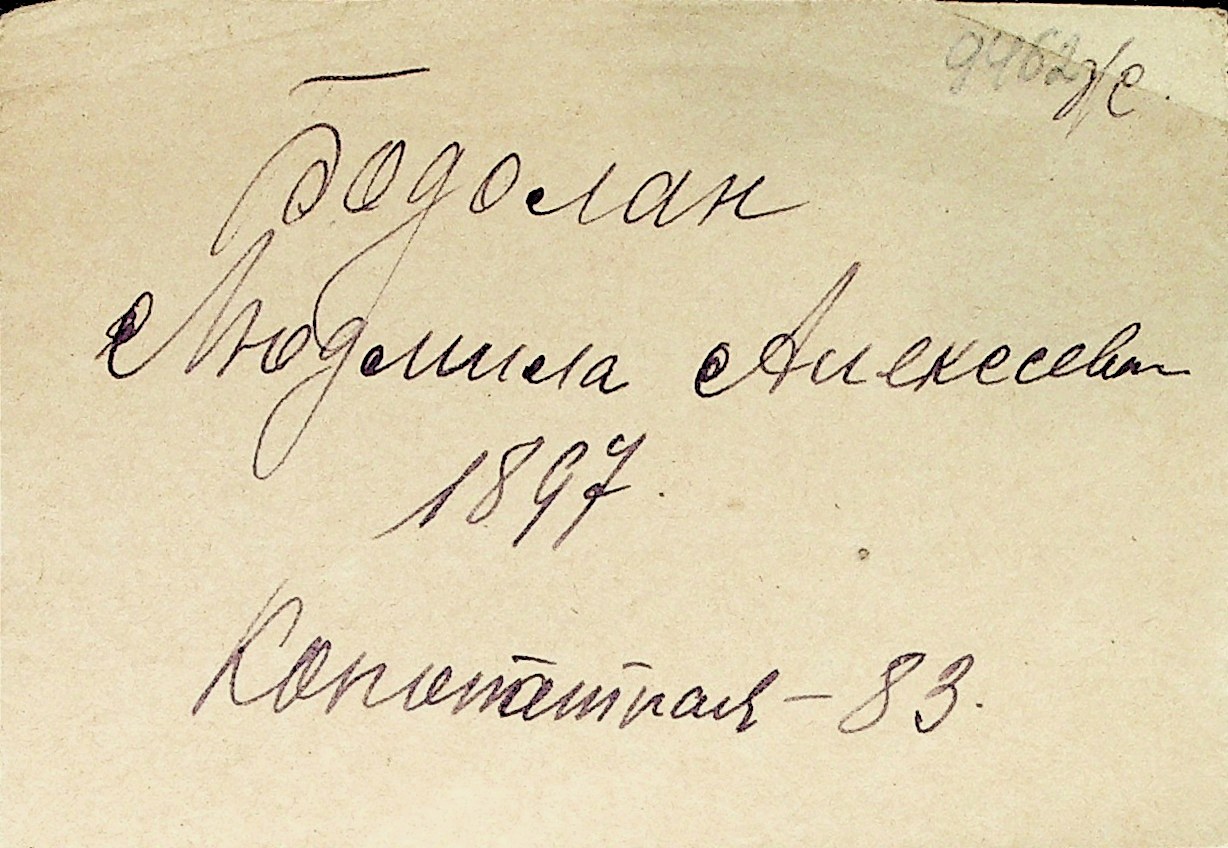 9462 ж.
Бодолан
Людмила Алексеевн
1897
– 83.